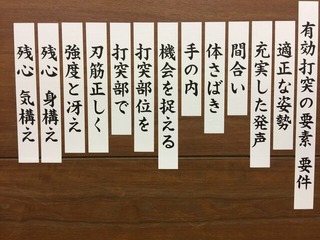 有効打突の要素 要件
適正な姿勢
充実した発声
間合い
体さばき
手の内
機会を捉える
打突部位を
打突部で
刃筋正しく
強度と冴え
残心 身構え
残心 気構え